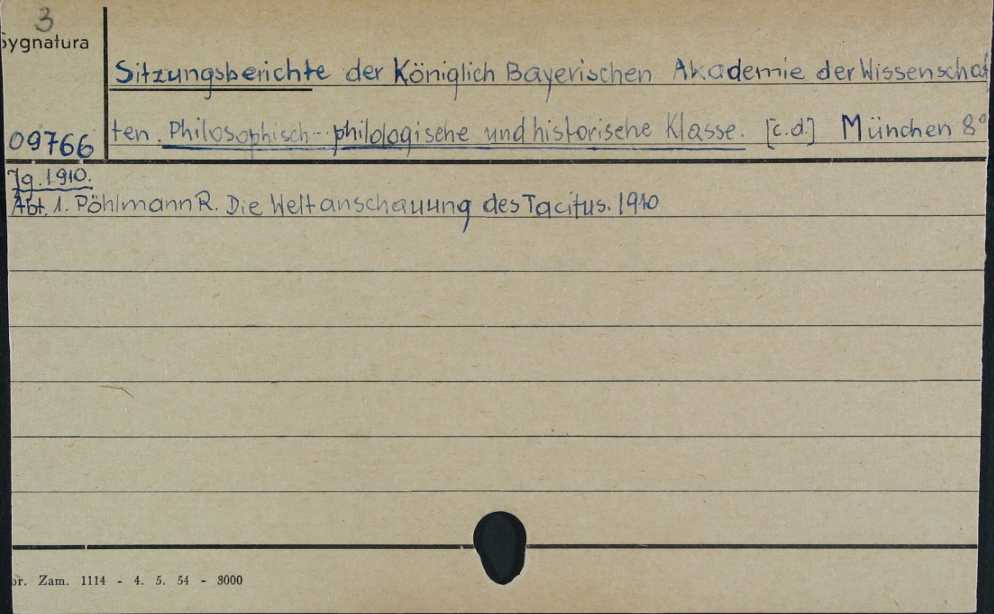 3
Sygnatura
Sitzungsberichte der Königlich Bayerischen Akademie der Wissenschaf
09766
ten. Philosophisch-philologische und historische Klasse. [c.d.] München 8°
Jg. 1910.
Abt. 1. Pöhlmann R. Die Weltanschauung des Tacitus. 1910
Zam. 1114 - 4. 5. 54 - 8000